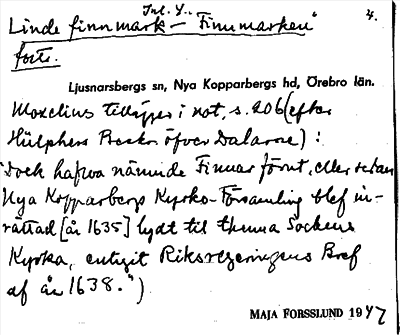 Inl. Y. 4.
Linde finnmark – "Finnmarken"
forts.
Ljusnarsbergs sn, Nya Kopparbergs hd, Örebro län.
Moxelius tillägger i not, s. 206 (efter
Hülphers Beskr. öfver Dalarne) :
"Dock hafva nämnde Finnar förut, eller sedan
Nya Kopparbergs Kyrko-Församling blef in-
rättad [år 1635] lydt til thenna Sockens
Kyrka, enligit Riksregeringens Bref
af år 1638.")
MAJA FORSSLUND 1947